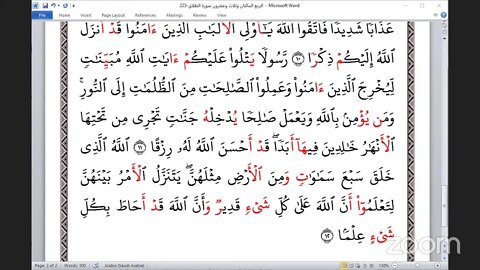 الربع المائتان وثلاث وعشرون سورة الطلاق-223 - Microsoft Word
عَذَابًا شَدِيدًا فَاتَّقُوا۟ اللَّهَ يَـٰٓأُو۟لِى الْأَلْبَـٰبِ الَّذِينَ ءَامَنُوا۟ قَدْ أَنزَلَ
اللَّهُ إِلَيْكُمْ ذِكْرًا ١٠ رَّسُولًا يَتْلُوا۟ عَلَيْكُمْ ءَايَـٰتِ اللَّهِ مُبَيِّنَـٰتٍ
لِّيُخْرِجَ الَّذِينَ ءَامَنُوا۟ وَعَمِلُوا۟ الصَّـٰلِحَـٰتِ مِنَ الظُّلُمَـٰتِ إِلَى النُّورِ ۚ
وَمَن يُؤْمِنۢ بِاللَّهِ وَيَعْمَلْ صَـٰلِحًا يُدْخِلْهُ جَنَّـٰتٍ تَجْرِى مِن تَحْتِهَا
الْأَنْهَـٰرُ خَـٰلِدِينَ فِيهَآ أَبَدًا ۖ قَدْ أَحْسَنَ اللَّهُ لَهُۥ رِزْقًا ١١ اللَّهُ الَّذِى
خَلَقَ سَبْعَ سَمَـٰوَٰتٍ وَمِنَ الْأَرْضِ مِثْلَهُنَّ ۖ يَتَنَزَّلُ الْأَمْرُ بَيْنَهُنَّ
لِتَعْلَمُوٓا۟ أَنَّ اللَّهَ عَلَىٰ كُلِّ شَىْءٍ قَدِيرٌ وَأَنَّ اللَّهَ قَدْ أَحَاطَ بِكُلِّ
شَىْءٍ عِلْمًۢا ١٢
zoom
Page: 2 of 2 Words: 300 Arabic (Saudi Arabia)